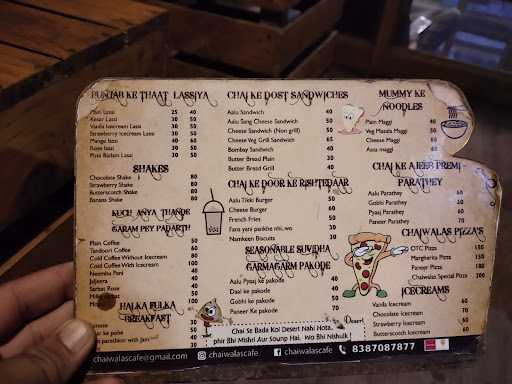 PUNJAB KE THAAT LASSIYA
Plain Lassi 25 40
Kesar Lassi 30 50
Vanila Icecream Lassi 30 50
Strawberry Icecream Lassi 30 50
Mango lassi 40 60
Rose lassi 30 50
Pista Badam Lassi 30 50
SHAKES
Chocolate Shake 80
Strawberry Shake 80
Butterscotch Shake 80
Banana Shake 80
KUCH ANYA THANDE
GARAM PEY PADARTH
Plain Coffee
Tandoori Coffee
Cold Coffee Without Icecream
Cold Coffee With Icecream
Neembu Pani
Jaljeera
Sarbat Rose
HALKA FULKA
BREAKFAST
CHAI KE DOST SANDWICHES
Aalu Sandwich 40
Aalu Sang Cheese Sandwich 50
Cheese Sandwich (Non grill) 50
Cheese Veg Grill Sandwich 65
Bombay Sandwich 40
Butter Bread Plain 30
Butter Bread Grill 40
CHAI KE DOOR KE RISHTEDAAR
Aalu Tikki Burger 50
Cheese Burger 60
French Fries 50
Fans yani pankhe nhi, wo
Namkeen Biscuits
SEASONABLE SUVIDHA
GARMAGARM PAKODE
Aalu Pyaaj ke pakode
Daal ke pakode
Gobhi ke pakode
Paneer Ke pakode
MUMMY KE
NOODLES
Plain Maggi 40
Veg Masala Maggi 50
Cheese Maggi 60
Aata maggi 60
CHAI KE AJEEB PREMI -
PARATHEY
Aalu Parathey 60
Gobhi Parathey 60
Pyaaj Parathey 60
Paneer Parathey 60
CHAIWALAS PIZZA'S
OTC Pizza 150
Margherita Pizza 150
Paneer Pizza 180
Chaiwalas Special Pizza 200
ICECREAMS
Vanila Icecream 60
Chocolate Icecream 70
Strawberry Icecream 60
Butterscotch Icecream 60
Desert
Chai Se Bada Koi Desert Nahi Hota..
phir Bhi Mishri Aur Sounp Hai. Wo Bhi Nishulk !
chaiwalascafe@gmail.com chaiwalascafe chaiwalascafe 8387087877